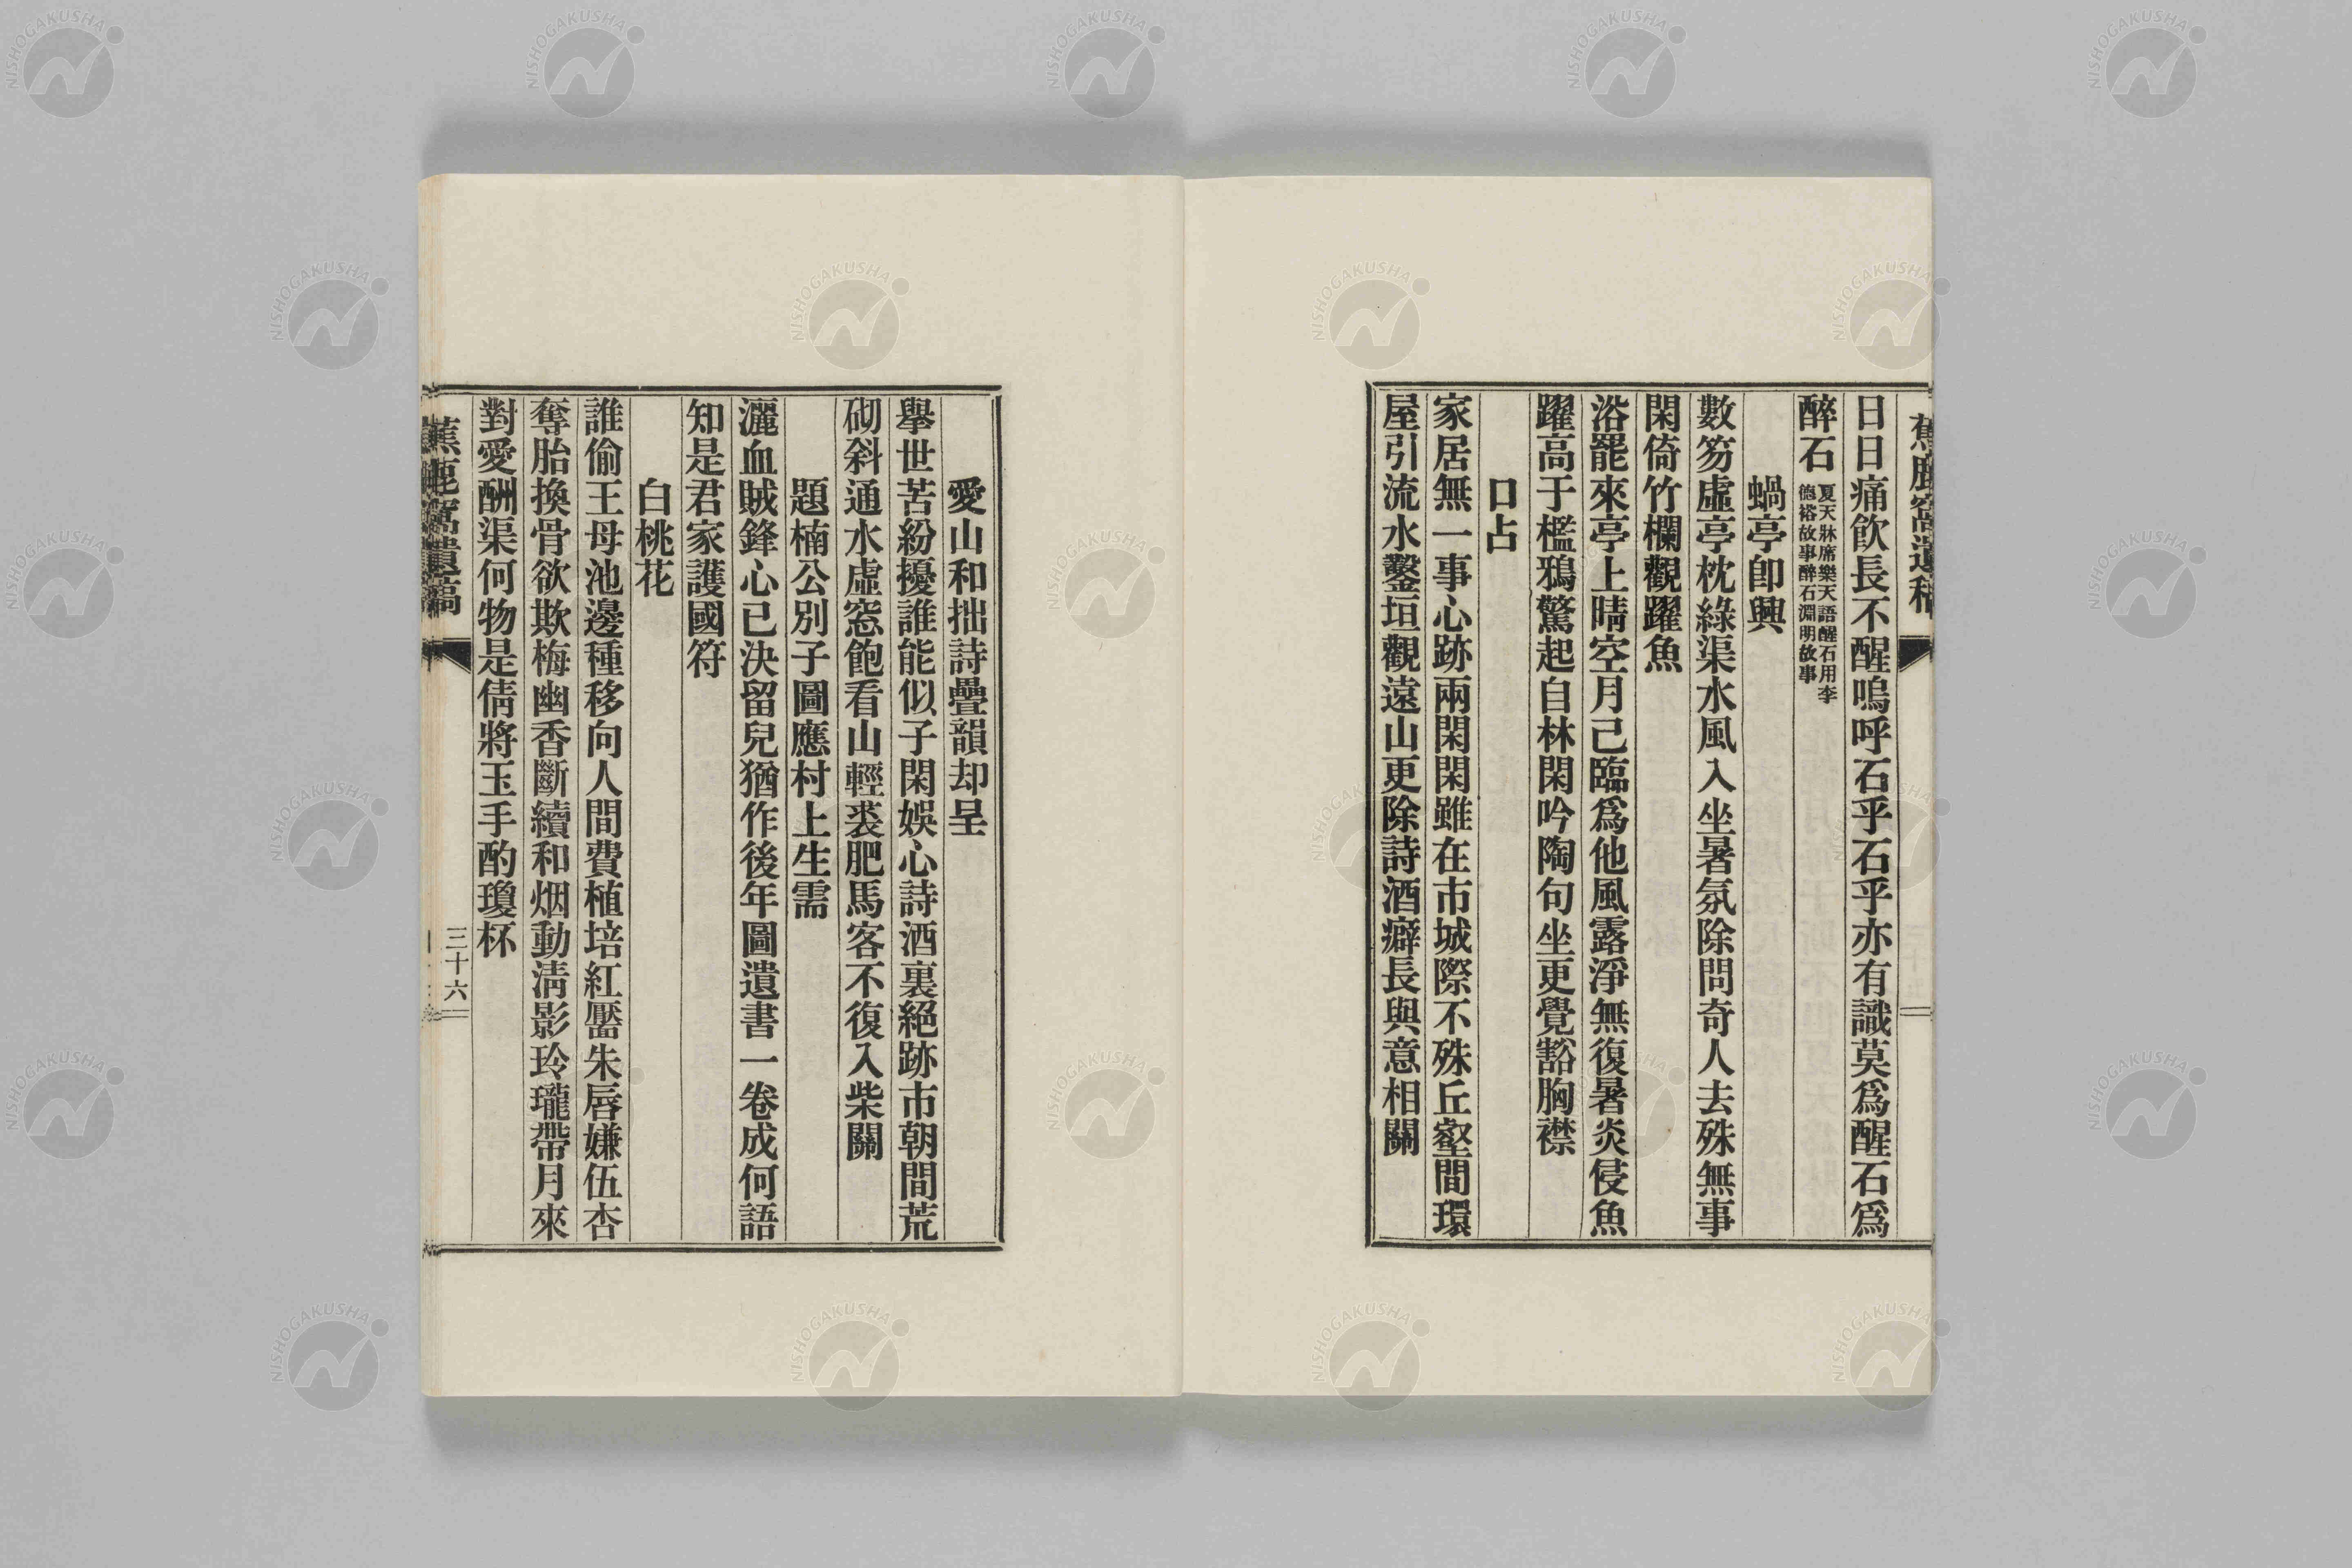 日日痛飲長不醒嗚呼石乎石乎亦有識莫爲醒石爲
醉石
夏天牀席樂天語醒石用李
德裕故事醉石淵明故事
蝸亭卽興
數笏虛亭枕綠渠水風入坐暑氛除問奇人去殊無事
閑倚竹欄觀躍魚
浴罷來亭上晴空月己臨爲他風露淨無復暑炎侵魚
躍高于檻鴉驚起自林閑吟陶句坐更覺豁胸襟
口占
家居無一事心跡兩閑閑雖在市城際不殊丘壑間環
屋引流水鑿垣觀遠山更除詩酒癖長與意相關
愛山和拙詩疊韻却呈
擧世苦紛擾誰能似子閑娛心詩酒裏絕跡市朝間荒
砌斜通水虛窓飽看山輕裘肥馬客不復入柴關
題楠公別子圖應村上生需
灑血賊鋒心已決留兒猶作後年圖遺書一卷成何語
知是君家護國符
白桃花
誰偷王母池邊種移向人間費植培紅靨朱唇嫌伍杏
奪胎換骨欲欺梅幽香斷續和烟動淸影玲瓏帶月來
對愛酬渠何物是倩將玉手酌瓊杯
蕉鹿窩遺稿
三十六
NISHOGAKUSHA